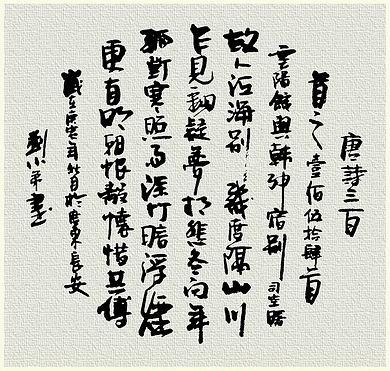 唐詩三百
首之壹佰伍拾肆首
雲陽館與韓紳宿别 司空曙
故人江海别幾度隔山川
乍見翻疑夢相悲各问年
孤灯寒照雨深竹暗浮煙
更有明朝恨離懷惜共傳
歲在庚寅年於廣東長安
劉小平書